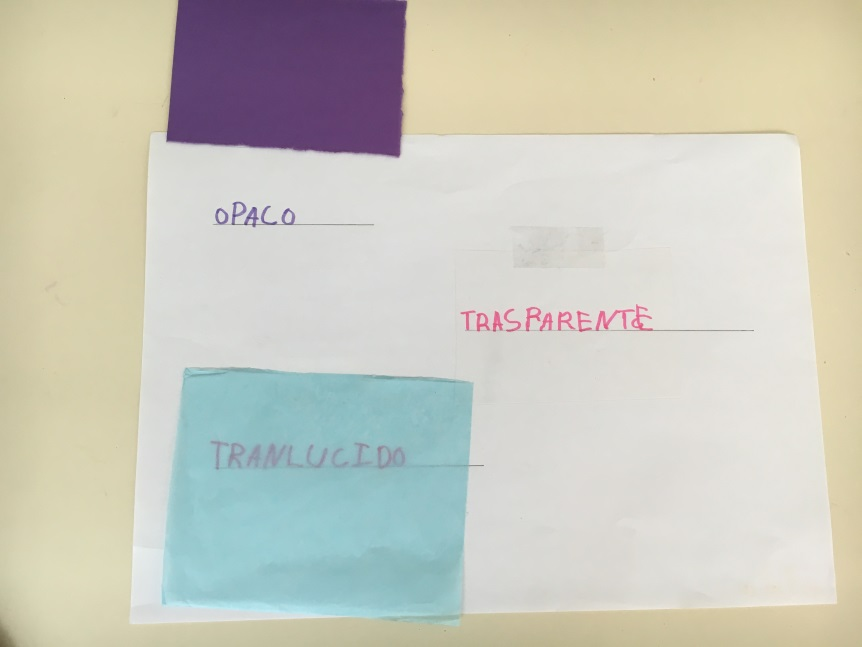 OPACO
TRASPARENTE
TRANLUCIDO